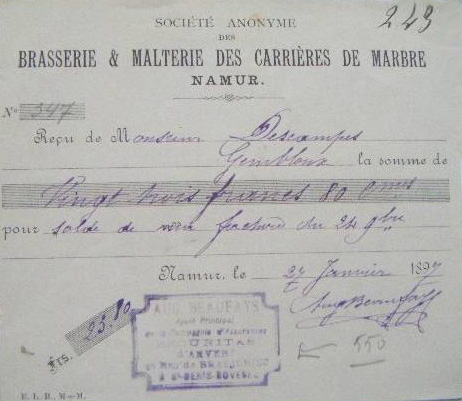 243
SOCIÉTÉ ANONYME
DES
BRASSERIE & MALTERIE DES CARRIÈRES DE MARBRE
NAMUR.
No 347
Reçu de Monsieur Descampes
Gembloux la somme de
Vingt trois francs 80 cmes
pour solde de facture du 24 9bre
Namur, le 27 Janvier 1897
Frs. 23.80
AUG. BEAUFAYS
Agent Principal
de la Compagnie d'Assurances
UNITAS
D'ANVERS
à St-DENIS-BOVESSE
550